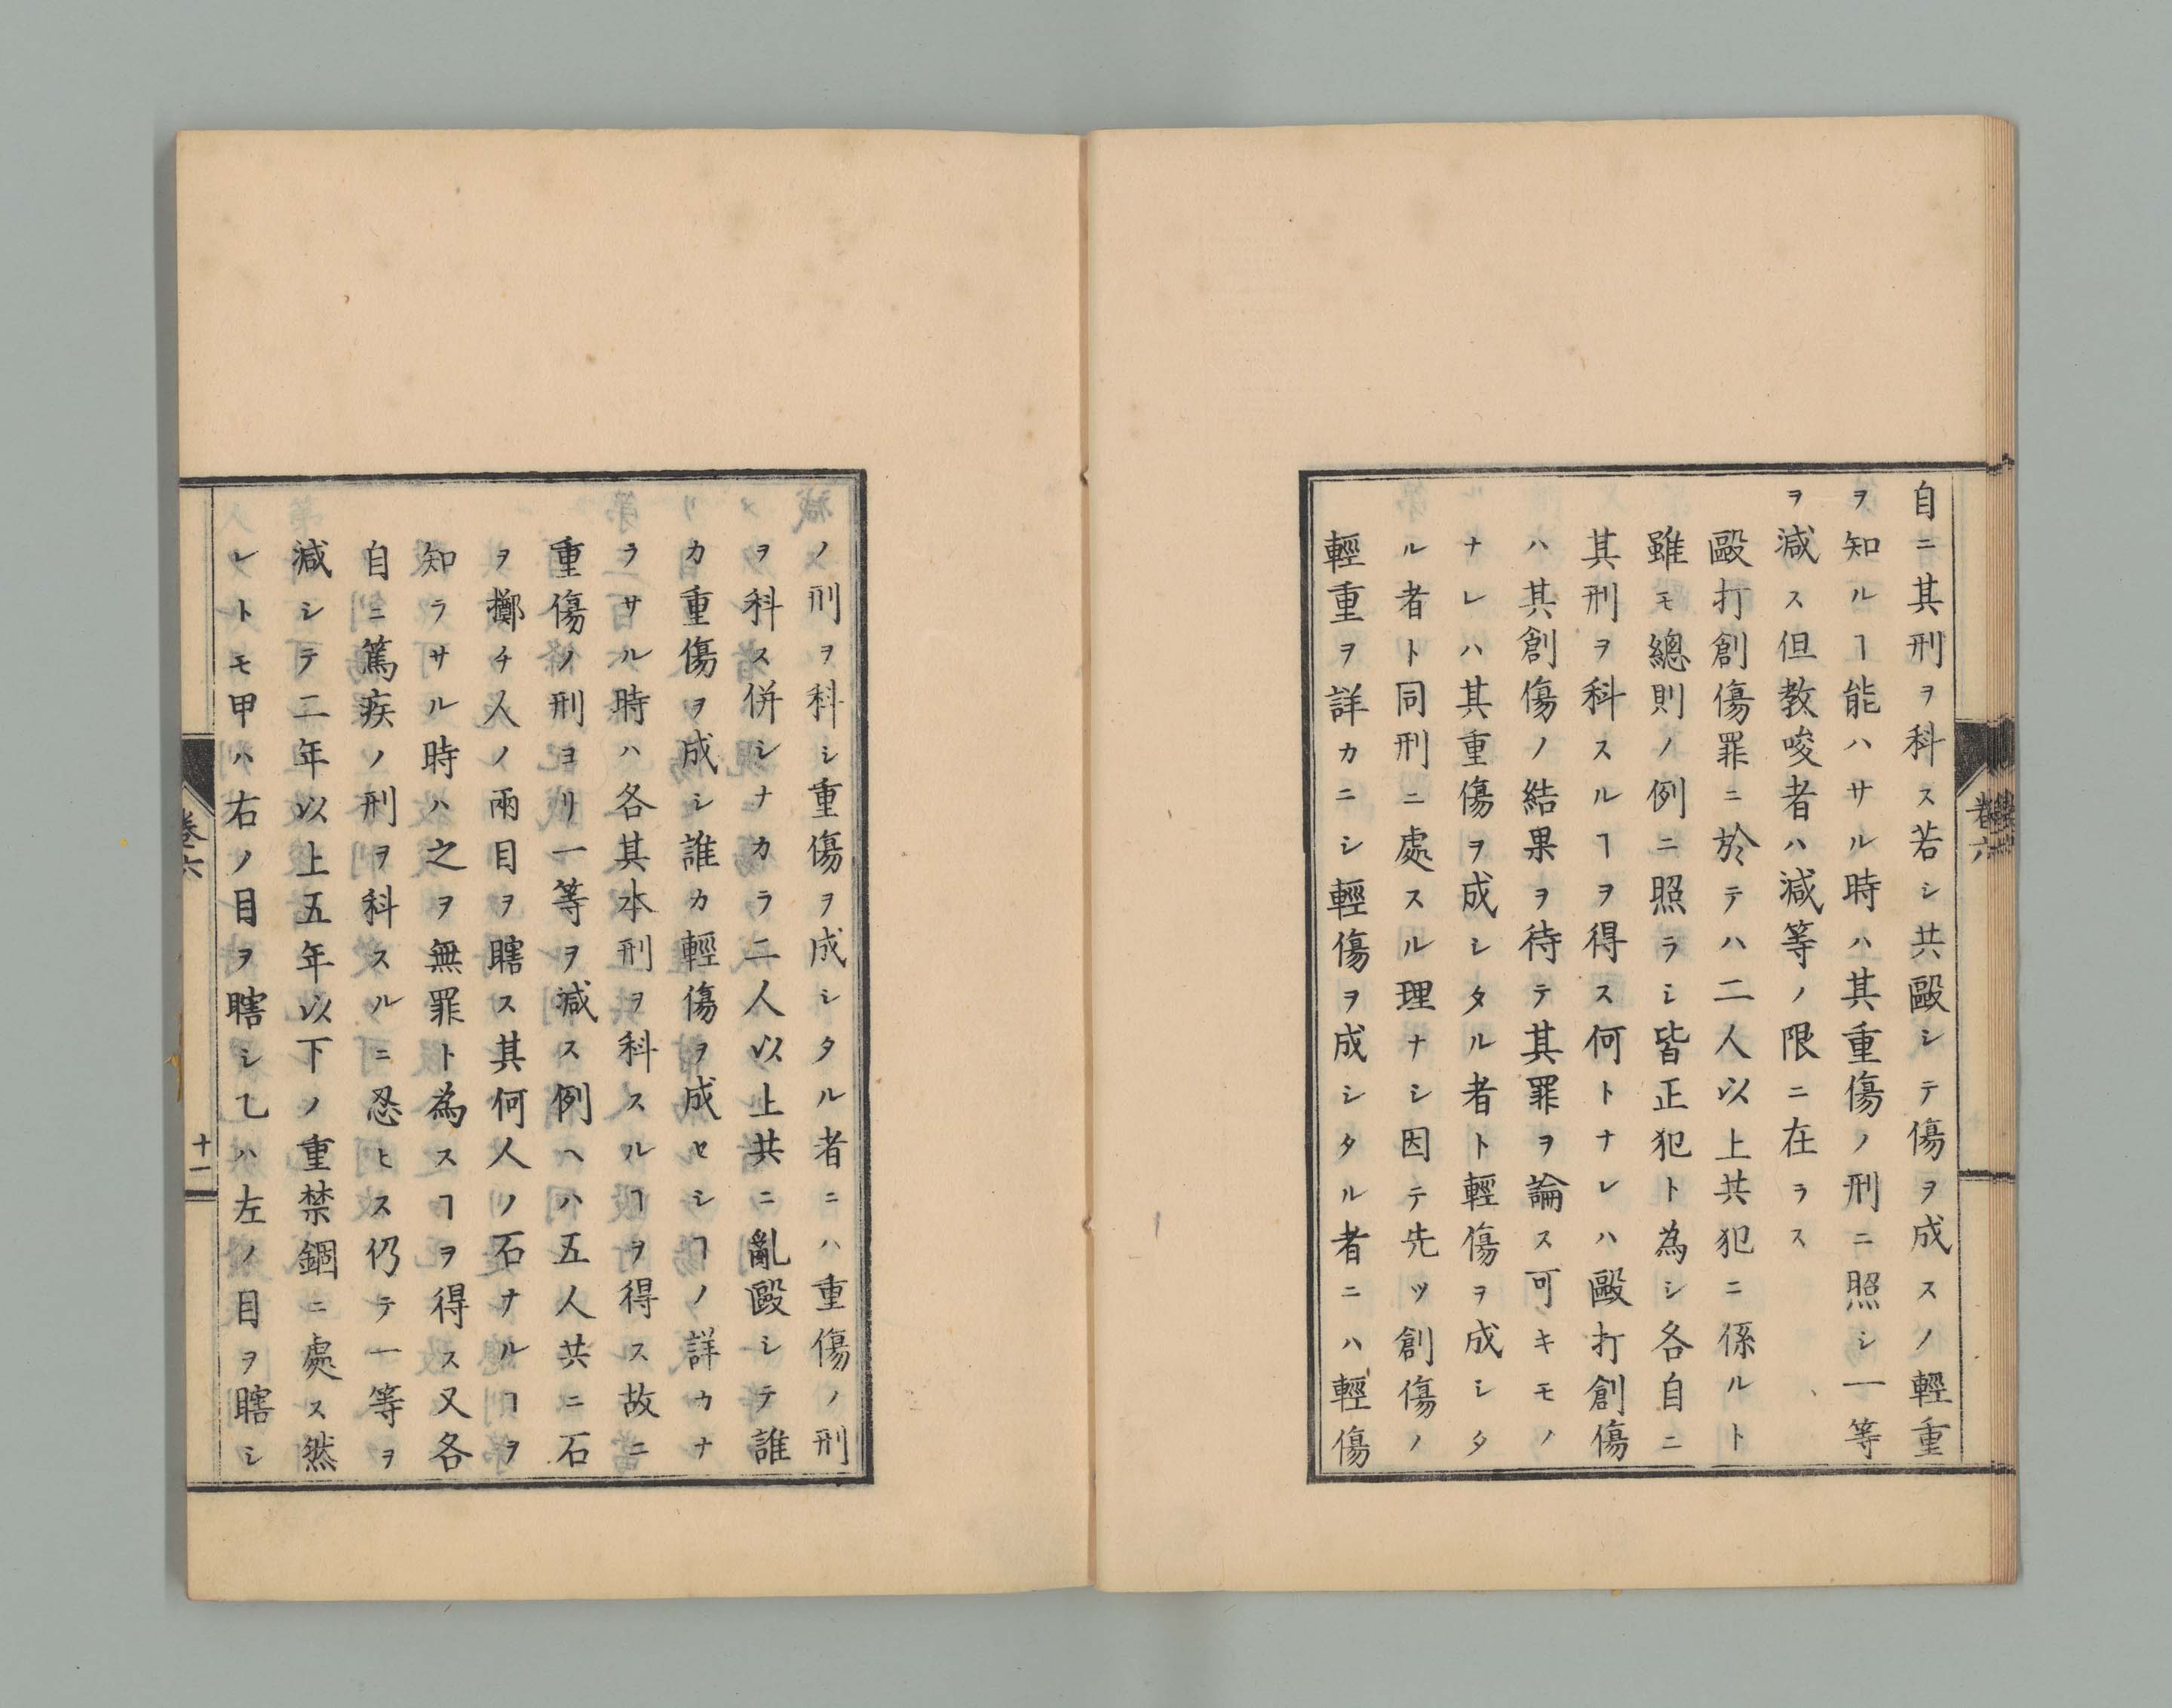 自ニ其刑ヲ科ス若シ共毆シテ傷ヲ成スノ輕重
ヲ知ルヿ能ハサル時ハ其重傷ノ刑ニ照シ一等
ヲ減ス但教唆者ハ減等ノ限ニ在ラス
毆打創傷罪ニ於テハ二人以上共犯ニ係ルト
雖モ總則ノ例ニ照ラシ皆正犯ト為シ各自ニ
其刑ヲ科スルヿヲ得ス何トナレハ毆打創傷
ハ其創傷ノ結果ヲ待テ其罪ヲ論ス可キモノ
ナレハ其重傷ヲ成シタル者ト輕傷ヲ成シタ
ル者ト同刑ニ處スル理ナシ因テ先ツ創傷ノ
輕重ヲ詳カニシ輕傷ヲ成シタル者ニハ輕傷
ノ刑ヲ科シ重傷ヲ成シタル者ニハ重傷ノ刑
ヲ科ス併シナカラ二人以上共ニ亂毆シテ誰
カ重傷ヲ成シ誰カ輕傷ヲ成セシヿノ詳カナ
ラサル時ハ各其本刑ヲ科スルヿヲ得ス故ニ
重傷ノ刑ヨリ一等ヲ減ス例ヘハ五人共ニ石
ヲ擲チ人ノ兩目ヲ瞎ス其何人ノ石ナルヿヲ
知ラサル時ハ之ヲ無罪ト為スヿヲ得ス又各
自ニ篤疾ノ刑ヲ科スルニ忍ヒス仍テ一等ヲ
減シテ二年以上五年以下ノ重禁錮ニ處ス然
レトモ甲ハ右ノ目ヲ瞎シ乙ハ左ノ目ヲ瞎シ
卷六
十一